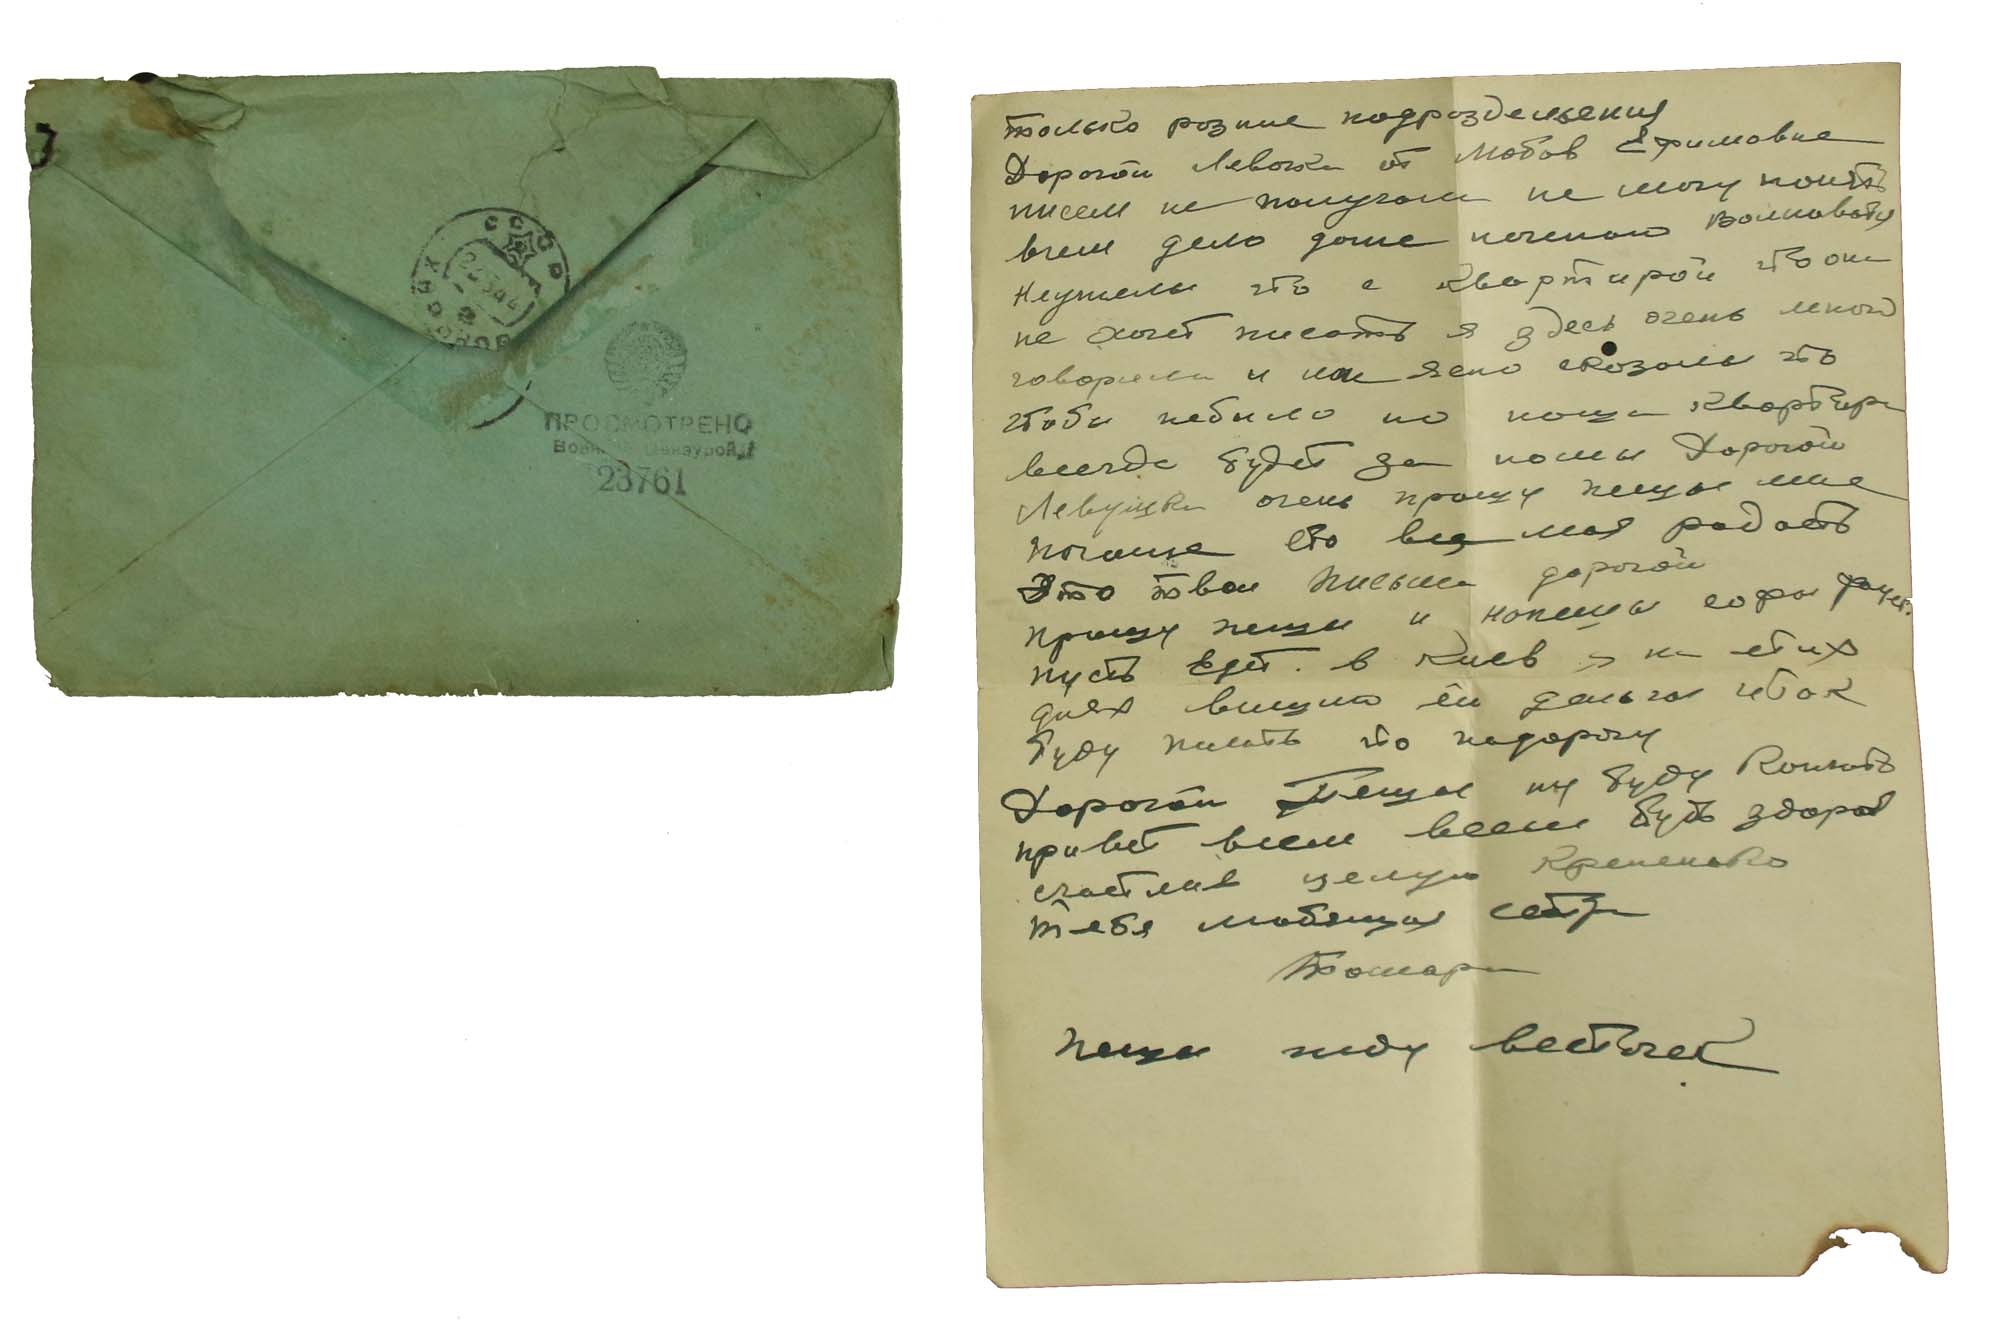 СССР
24 5 44
ПРОСМОТРЕНО
Военной Цензурой
23761
только розние подрозделения
Дорогой Левочка от Любов Ефимовне
писем не получаю не могу понять
вчем дело даже начинаю волноватся
Неужели что с квартирой то она
не хочет писать я здесь очень много
говорила и мне ясно сказали что
чтоби небило но наша квартира
всегда будет за нами Дорогой
Левушка очень прашу пиши мне
почаще ето вся моя радость
Это твои письма дорогой
прашу пиши и напиши софи
пусть едет в Киев я на етих
днях вишлю ей деньги итак
буду писать что надорогу
Дорогой Пиши ну буду Кончать
привет всем всем будь здоров
счастлив целую Крепенько
тебя любящая сестра
Тамара
пиши жду весточек